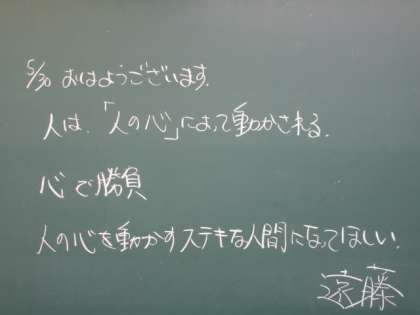 5/30 おはようございます.
人は、「人の心」によって動かされる.
心で勝負
人の心を動かすステキな人間になってほしい.
遠藤